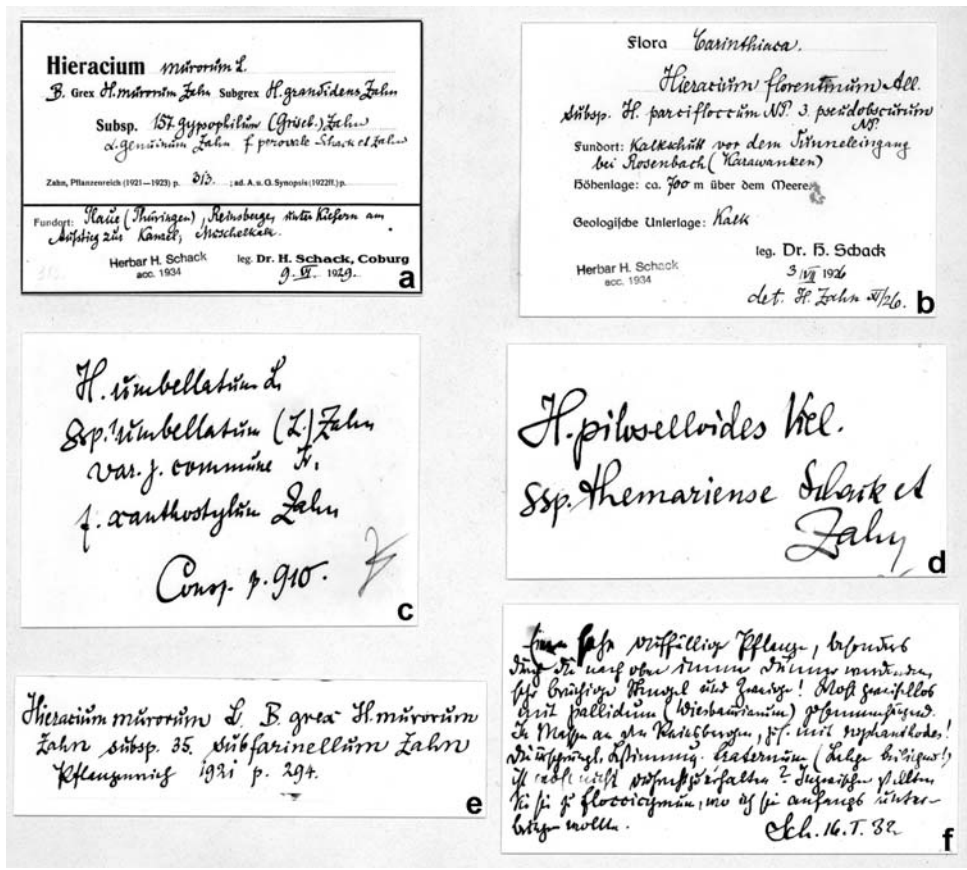 Hieracium murorum L.
B. Grex H. murorum Zahn Subgrex H. grandidens Zahn
Subsp. 157. gypsophilum (Griseb.) Zahn
α. genuinum Zahn f. perovale Schack et Zahn
Zahn, Pflanzenreich (1921—1923) p. 313. ; ad. A. u. G. Synopsis (1922ff.) p.
Fundort: Plaue (Thüringen), Reinsberge, unter Kiefern am
Aufstieg zur Kanzel, Muschelkalk.
Herbar H. Schack
acc. 1934
leg. Dr. H. Schack, Coburg
9. VI. 1929.
a
Flora Carinthiaca.
Hieracium florentinum All.
subsp. H. parcifloccum NP. 3. pseudobscurum
NP.
Fundort: Kalkschutt vor dem Tunneleingang
bei Rosenbach (Karawanken)
Höhenlage: ca. 700 m über dem Meere.
Geologische Unterlage: Kalk
leg. Dr. H. Schack
Herbar H. Schack
acc. 1934
3 VII 1926
det. H. Zahn XI/26.
b
H. umbellatum L.
ssp. umbellatum (L.) Zahn
var. j. commune Fr.
f. xanthostylum Zahn
Consp. p. 910.
c
H. piloselloides Vill.
ssp. themariense Schack et
Zahn
d
Hieracium murorum L. B. grex H. murorum
Zahn subsp. 35. subfarinellum Zahn
Pflanzenreich 1921 p. 294.
e
Eine sehr auffällige Pflanze, besonders
durch die nach oben immer dünner werdenden,
sehr brüchige Stengel und Zweige! Wohl zweifellos
mit pallidum (Wiesbaurianum) zusammenhängend.
In Masse an den Reinsbergen, zus. mit
Die ursprüngl. Bestimmung
ist wohl nicht aufrecht zu erhalten? Inzwischen stellten
Sie sie zu floccicymum, wo ich sie anfangs unter-
bringen wollte.
Sch. 16. I. 32
f